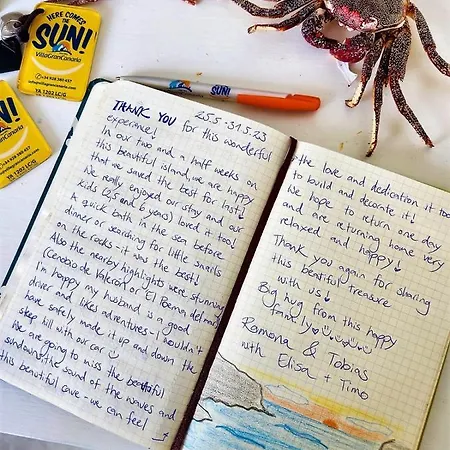 HERE COMES THE
SUN!
VillaGranCanaria
+34 928 380 437
YA 1202 LC/G
UN!
+34 928 380 437
YA 1202 LC/G
SUN!
25.5 - 31.5.23
THANK YOU for this wonderful
experience!
In our two and a half weeks on
this beautiful island, we are happy
that we saved the best for last!
We really enjoyed our stay and our
kids (2,5 and 6 years) loved it too!
A quick bath in the sea before
dinner or searching for little snails
on the rocks - it was the best!
Also the nearby highlights were stunning
(Cenobio de Valerón or El Poema del mar).
I'm happy my husband is a good
driver and likes adventures - I wouldn't
have safely made it up and down the
steep hill with our car
We are going to miss the beautiful
sundowns, the sound of the waves and
this beautiful cave - we can feel
the love and dedication it took
to build and decorate it!
We hope to return one day
and are returning home very
relaxed and happy!
Thank you again for sharing
this beautiful treasure
with us!
Big hug from this happy
family
Ramona & Tobias
with Elisa + Timo